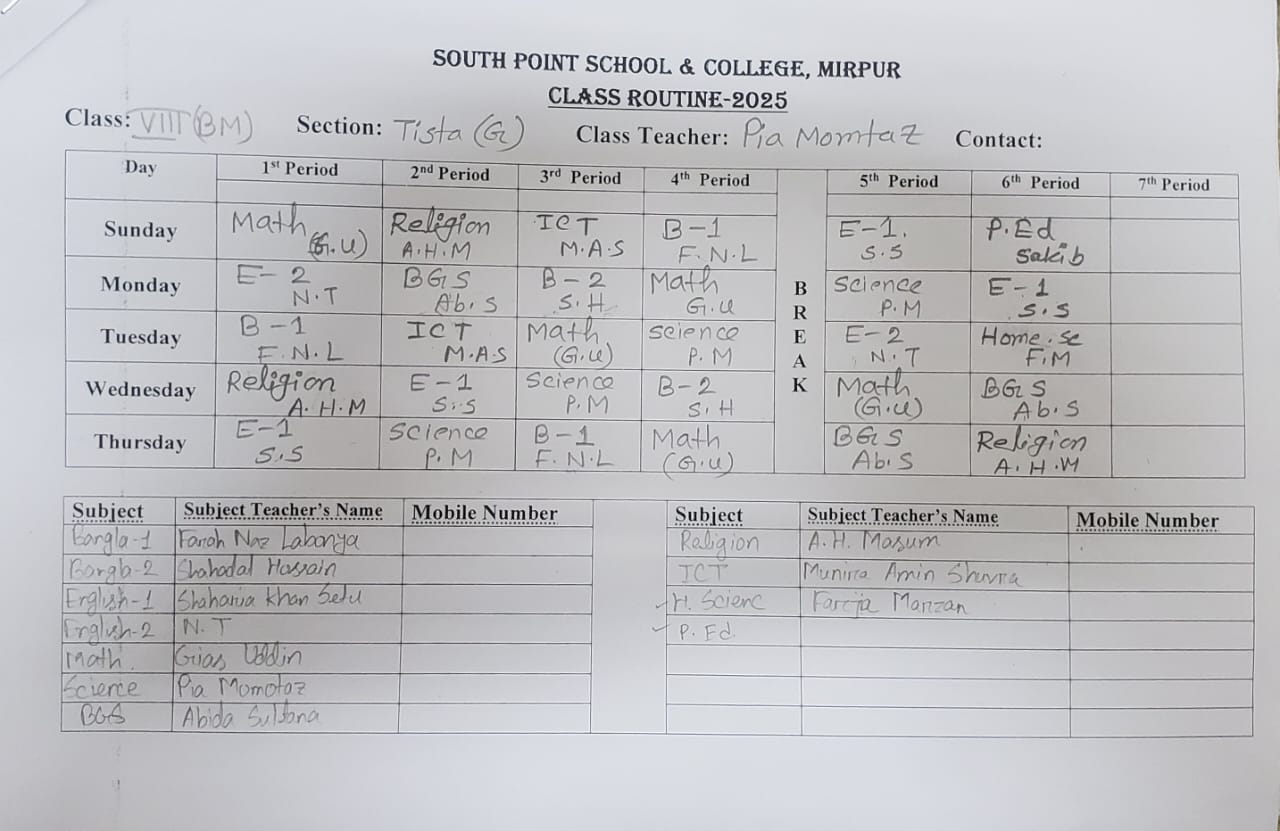 SOUTH POINT SCHOOL & COLLEGE, MIRPUR
CLASS ROUTINE-2025
Class: VIII (BM) Section: Tista (G) Class Teacher: Pia Momtaz Contact:
Day 1st Period 2nd Period 3rd Period 4th Period BREAK 5th Period 6th Period 7th Period
Sunday Math (G.U) Religion A.H.M ICT M.A.S B-1 F.N.L E-1. S.S P.Ed Sakib
Monday E-2 N.T BGS Ab.S B-2 S.H Math G.U Science P.M E-1 S.S
Tuesday B-1 F.N.L ICT M.A.S Math (G.U) Science P.M E-2 N.T Home.Sc F.M
Wednesday Religion A.H.M E-1 S.S Science P.M B-2 S.H Math (G.U) BGS Ab.S
Thursday E-1 S.S Science P.M B-1 F.N.L Math (G.U) BGS Ab.S Religion A.H.M
Subject Subject Teacher's Name Mobile Number
Bangla-1 Farah Naz Labonya
Bangla-2 Shahadal Hossain
English-1 Shaharia Khan Setu
English-2 N.T
Math. Gias Uddin
Science Pia Momotaz
BGS Abida Sultana
Subject Subject Teacher's Name Mobile Number
Religion A.H. Masum
ICT Munira Amin Shuvra
H. Scienc
P. Ed.